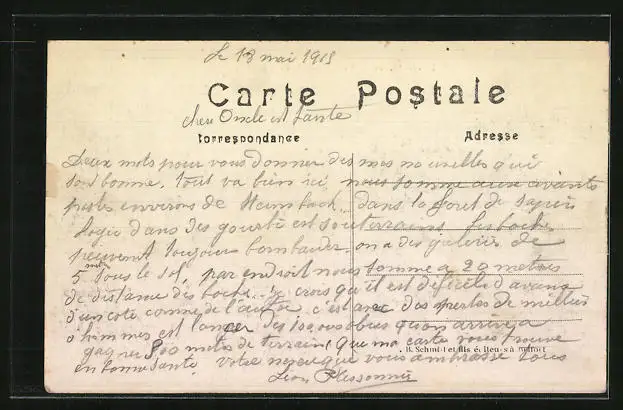 Le 18 mai 1915
Carte Postale
cher Oncle est tante
Correspondance
Adresse
Deux mots pour vous donner des mes nouvelles qui
son bonne. tout va bien ici nous somme aux avants
postes environs de dans la foret de sapin
logés dans des gourbi est souterrains les boches
peuvent toujour bombarder on a des galerie de
5 mtr sous le sol, par endroit nous somme a 20 metres
de distance des boche. je crois qu'il est dificile d'avance
d'un coté comme de l'autre c'est avec des pertes de millier
d'hommes est lancer des 100,000 obus qu'on arrive a
gagner 800 mets de terrain, que ma carte vous trouve
en bonne santé. votre neveu que vous embrasse tous
B. Schmitt et fils éditeurs à Belfort
Léon